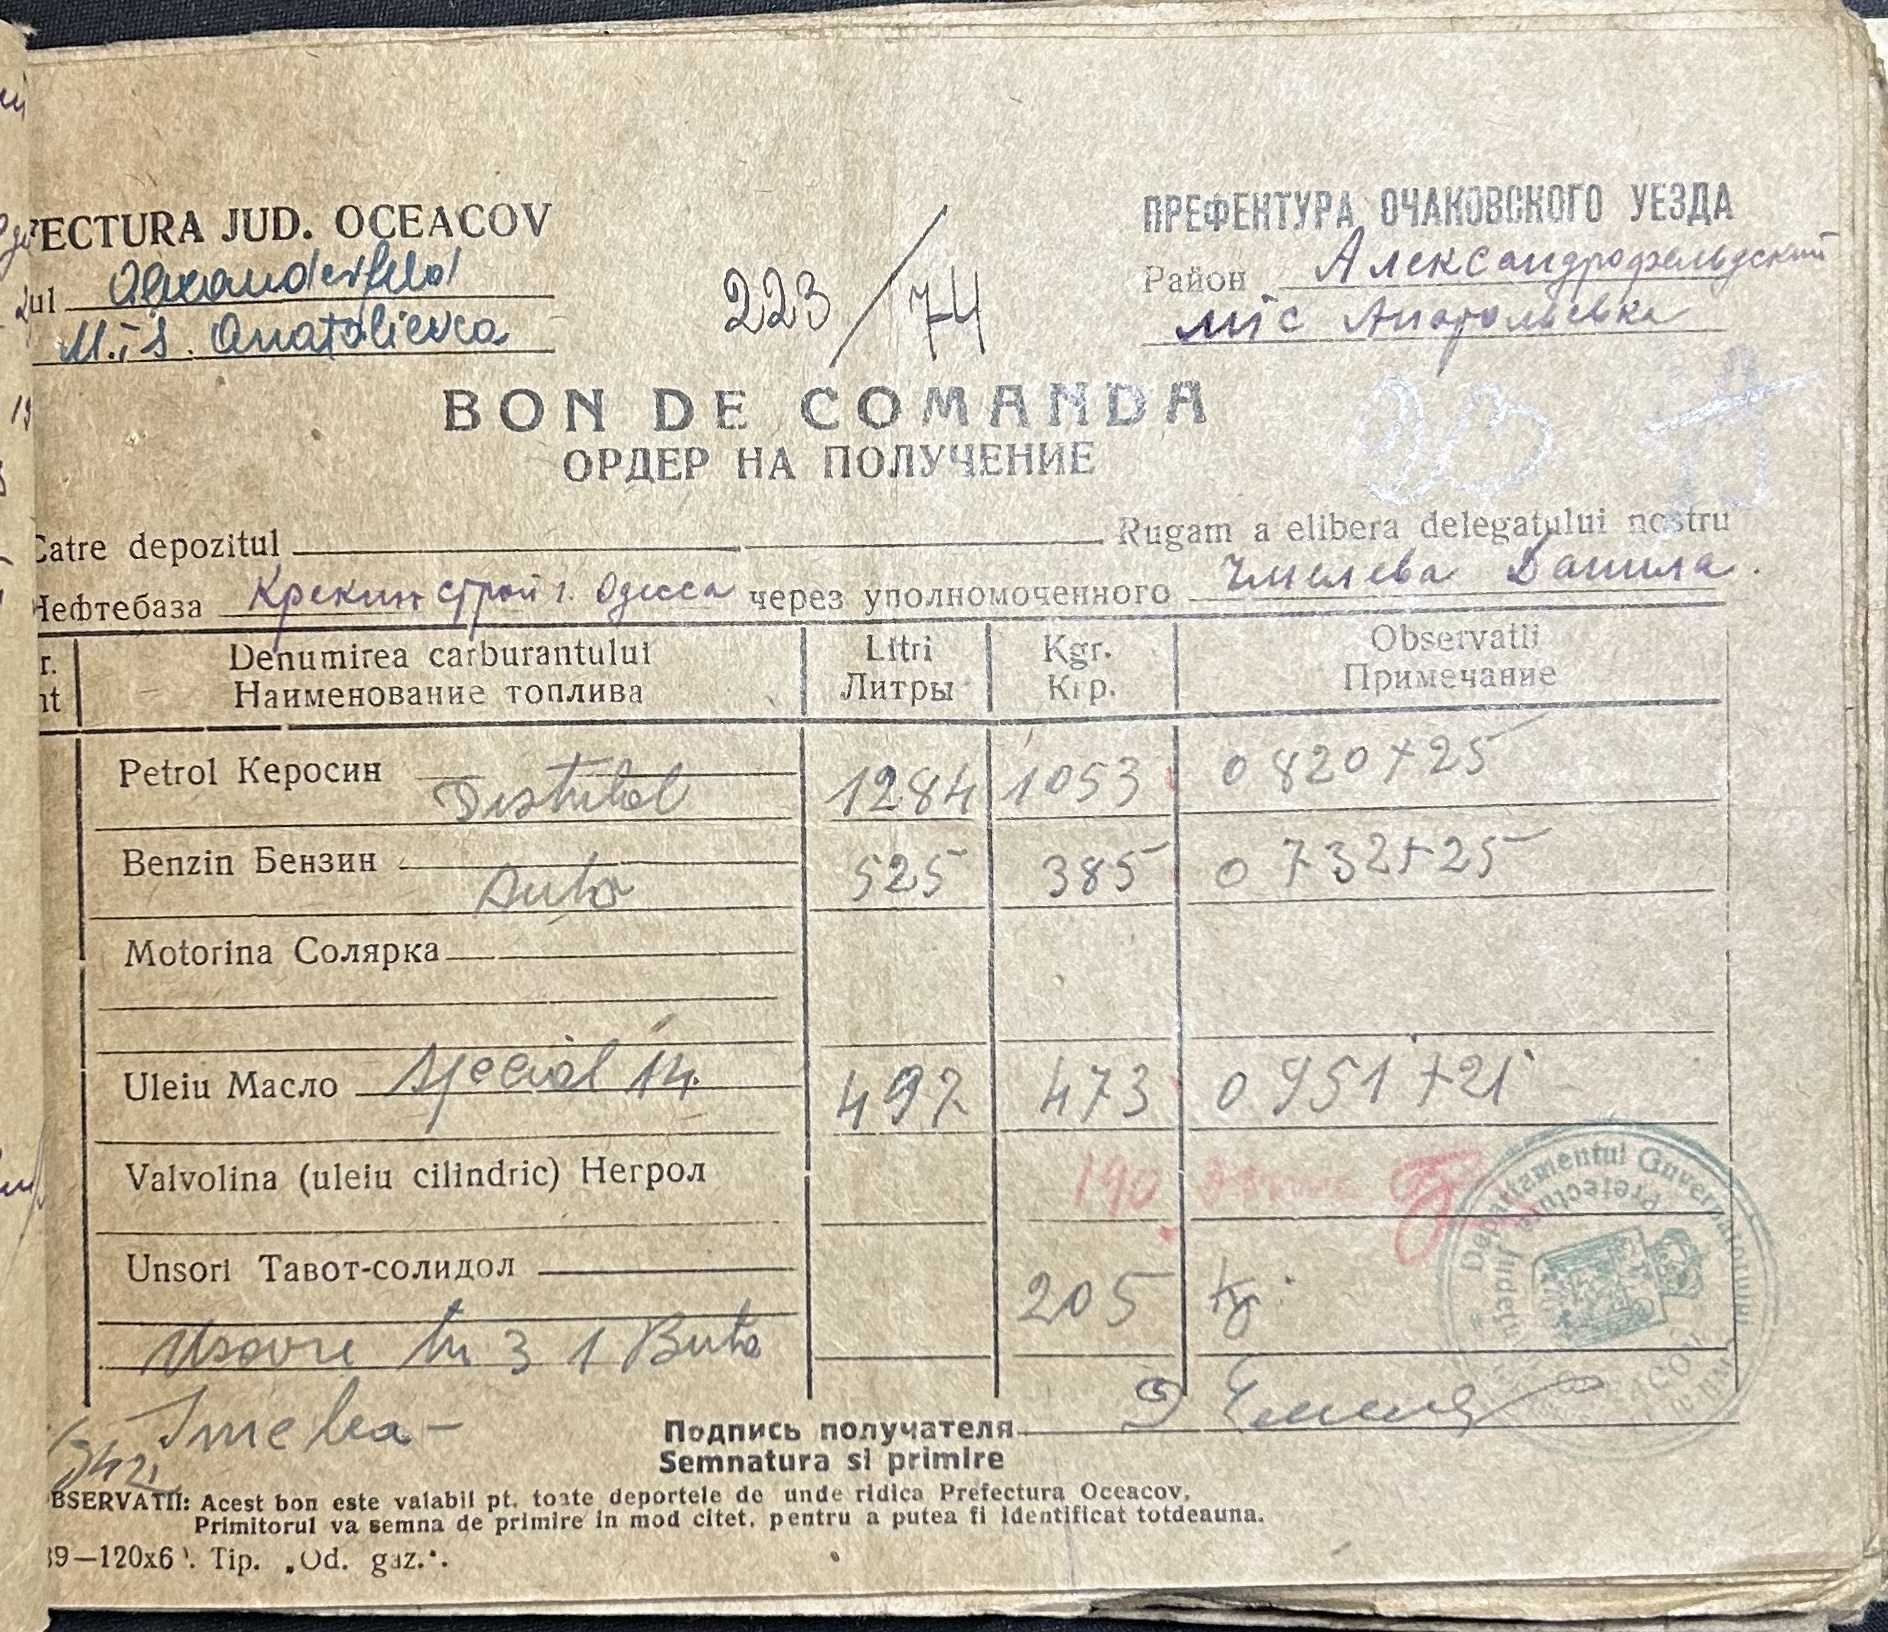 FECTURA JUD. OCEACOV
ПРЕФЕНТУРА ОЧАКОВСКОГО УЕЗДА
ul Alexanderfeld
223/74
Район Александрофельдский
M.T.S. Anatolievca
мтс Анатольевка
BON DE COMANDA
ОРДЕР НА ПОЛУЧЕНИЕ
Catre depozitul Rugam a elibera delegatului nostru
Нефтебаза Крекинстрой г. Одесса через уполномоченного Чмелева Данила.
r. Denumirea carburantului Litri Kgr. Observatii
nt Наименование топлива Литры Кгр. Примечание
Petrol Керосин Distilat 1284 1053 0820+25
Benzin Бензин Auto 525 385 0732+25
Motorina Солярка
Uleiu Масло special 14. 497 473 0951+21
Valvolina (uleiu cilindric) Негрол 190
Unsori Тавот-солидол 205 kg.
3 1 Buto
Подпись получателя
Semnatura si primire
BSERVATII: Acest bon este valabil pt. toate deportele de unde ridica Prefectura Oceacov.
Primitorul va semna de primire in mod citet, pentru a putea fi identificat totdeauna.
39—120x6 . Tip. „Od. gaz.".
Departamentul Guvernatorului
Prefectura Județului
OCEACOV